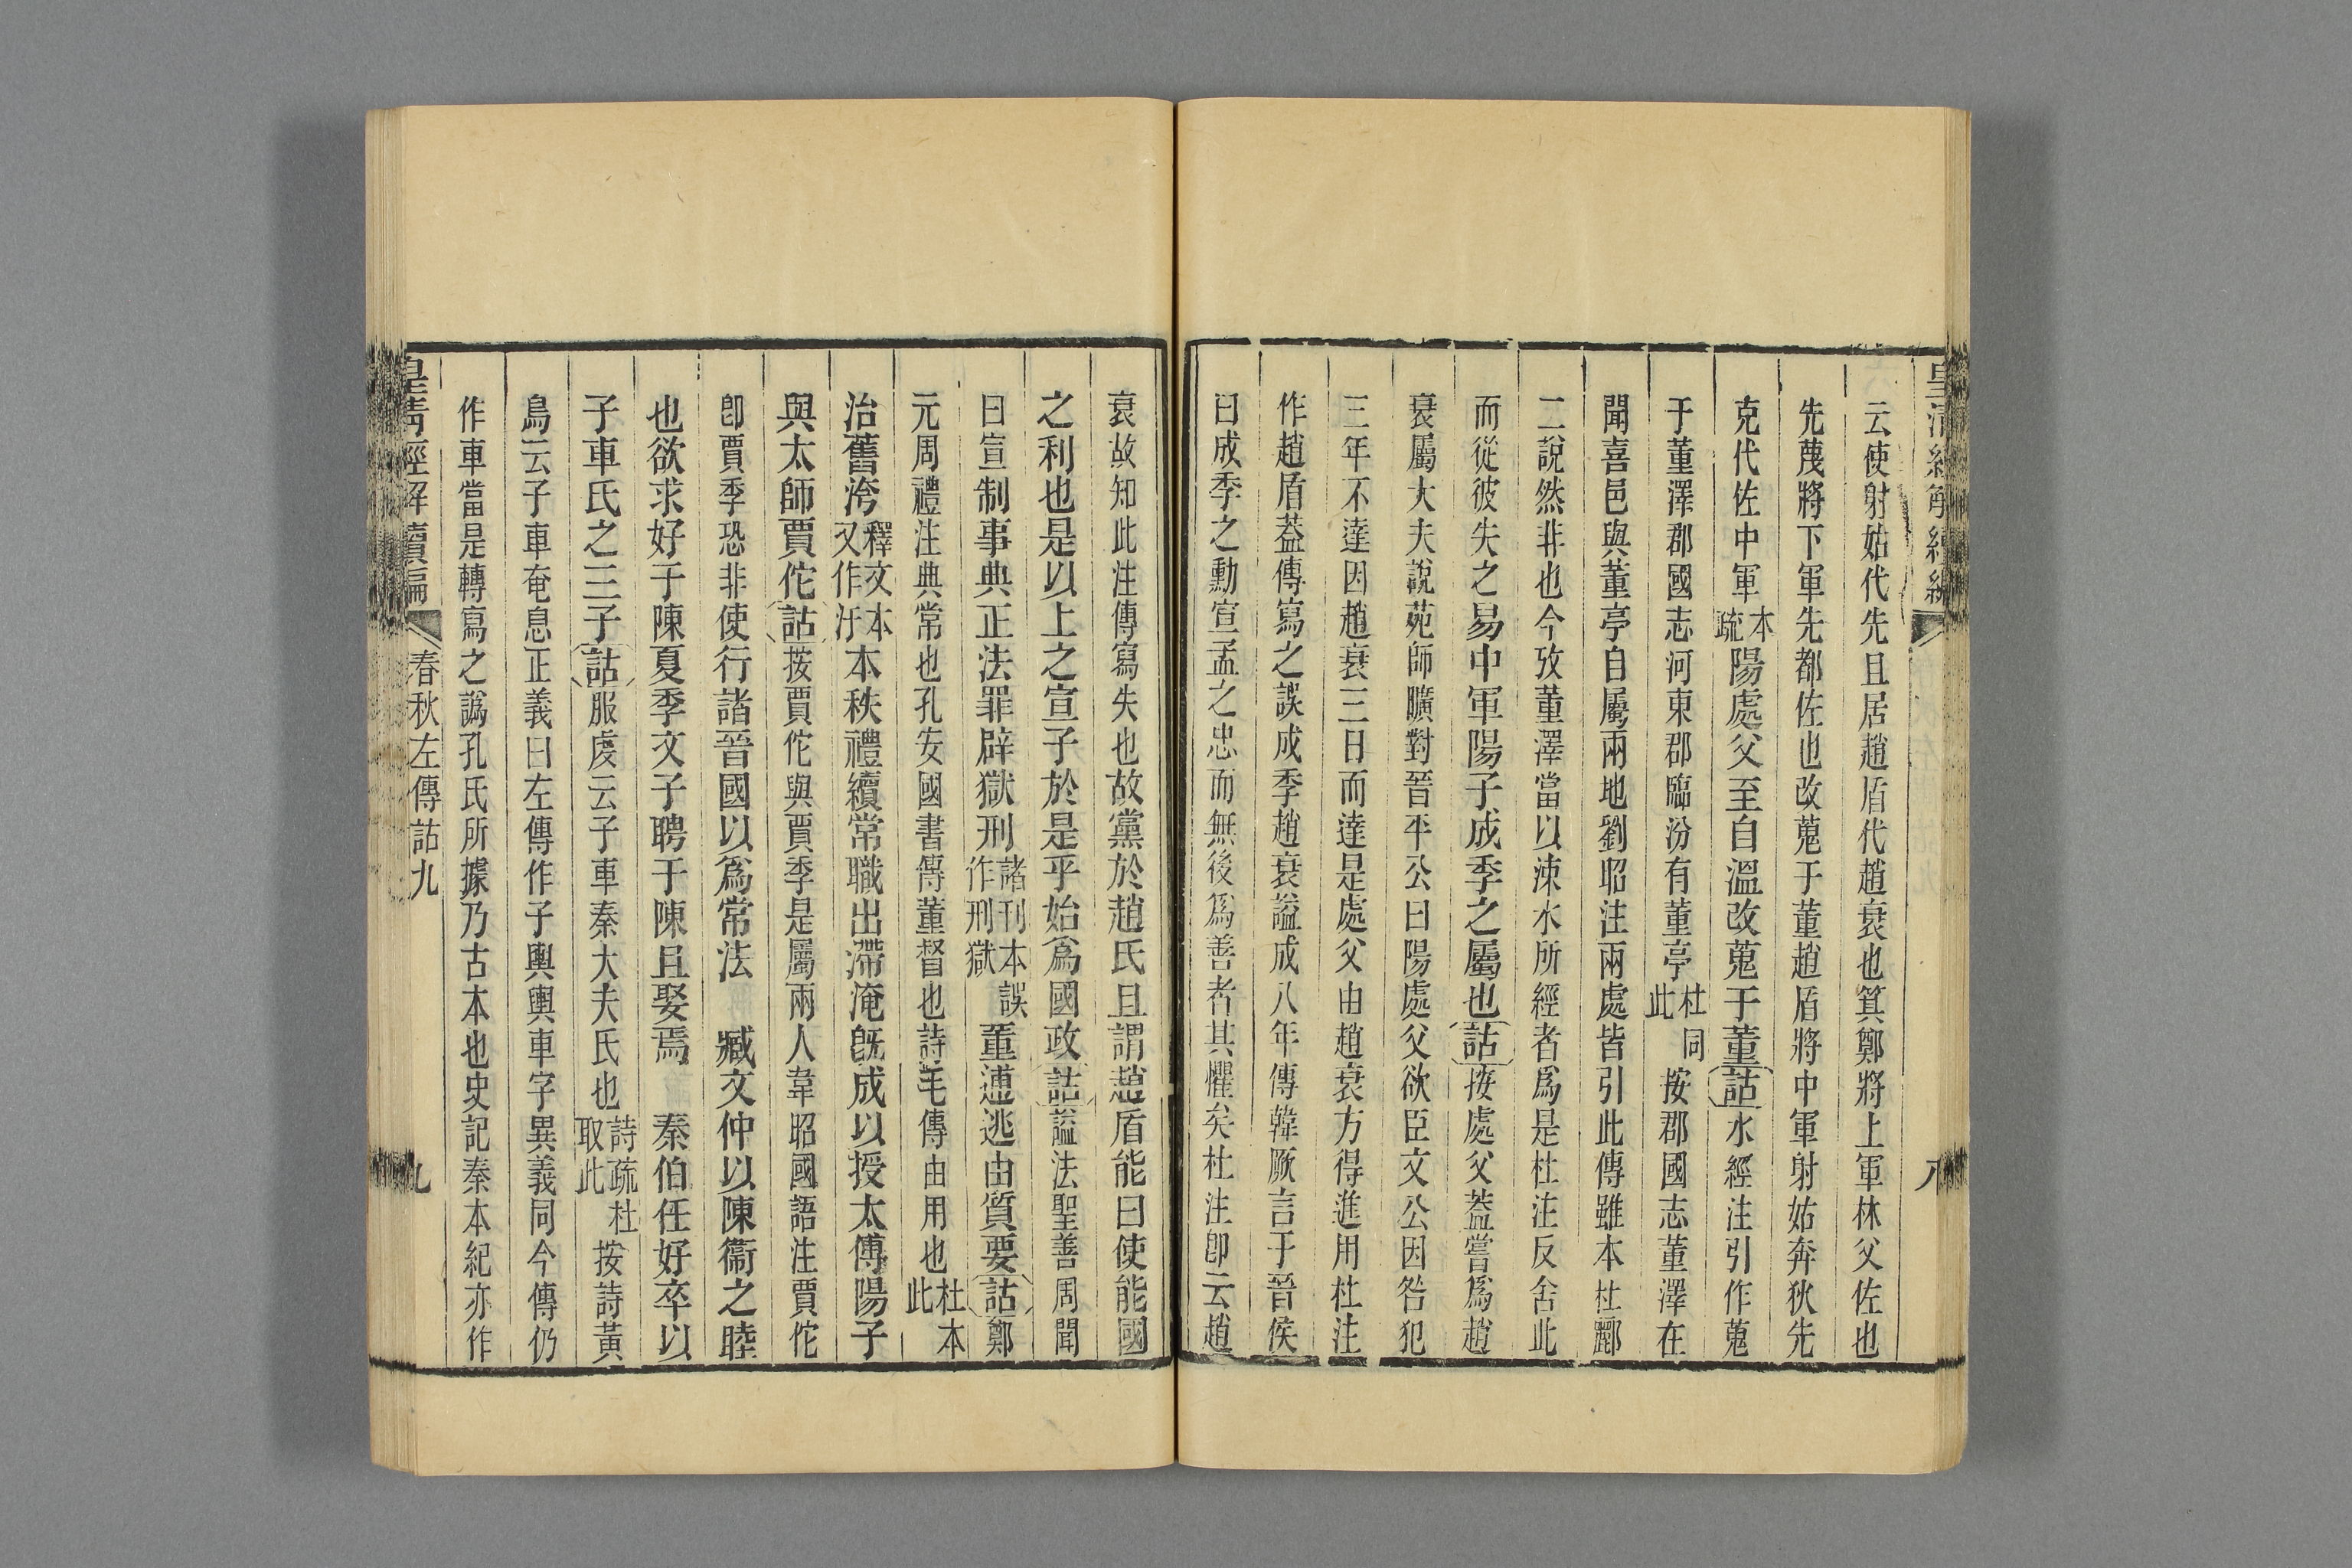 皇清經解續編
八
云使射姑代先且居趙盾代趙衰也箕鄭將上軍林父佐也
先蔑將下軍先都佐也改蒐于董趙盾將中軍射姑奔狄先
克代佐中軍本疏陽處父至自溫改蒐于董詁水經注引作蒐
于董澤郡國志河東郡臨汾有董亭杜同此按郡國志董澤在
聞喜邑與董亭自屬兩地劉昭注兩處皆引此傳雖本杜酈
二說然非也今攷董澤當以涑水所經者爲是杜注反舍此
而從彼失之易中軍陽子成季之屬也詁按處父蓋嘗爲趙
衰屬大夫說苑師曠對晉平公曰陽處父欲臣文公因咎犯
三年不達因趙衰三日而達是處父由趙衰方得進用杜注
作趙盾蓋傳寫之誤成季趙衰謚成八年傳韓厥言于晉侯
曰成季之勳宣孟之忠而無後爲善者其懼矣杜注卽云趙
衰故知此注傳寫失也故黨於趙氏且謂趙盾能曰使能國
之利也是以上之宣子於是乎始爲國政詁謚法聖善周聞
曰宣制事典正法罪辟獄刑諸刊本誤作刑獄董逋逃由質要詁鄭
元周禮注典常也孔安國書傳董督也詩毛傳由用也杜本此
治舊洿釋文本又作汙本秩禮續常職出滯淹旣成以授太傅陽子
與太師賈佗詁按賈佗與賈季是屬兩人韋昭國語注賈佗
卽賈季恐非使行諸晉國以爲常法　臧文仲以陳衞之睦
也欲求好于陳夏季文子聘于陳且娶焉　秦伯任好卒以
子車氏之三子詁服虔云子車秦大夫氏也詩疏杜取此按詩黃
鳥云子車奄息正義曰左傳作子輿輿車字異義同今傳仍
作車當是轉寫之譌孔氏所據乃古本也史記秦本紀亦作
皇清經解續編
春秋左傳詁九
九